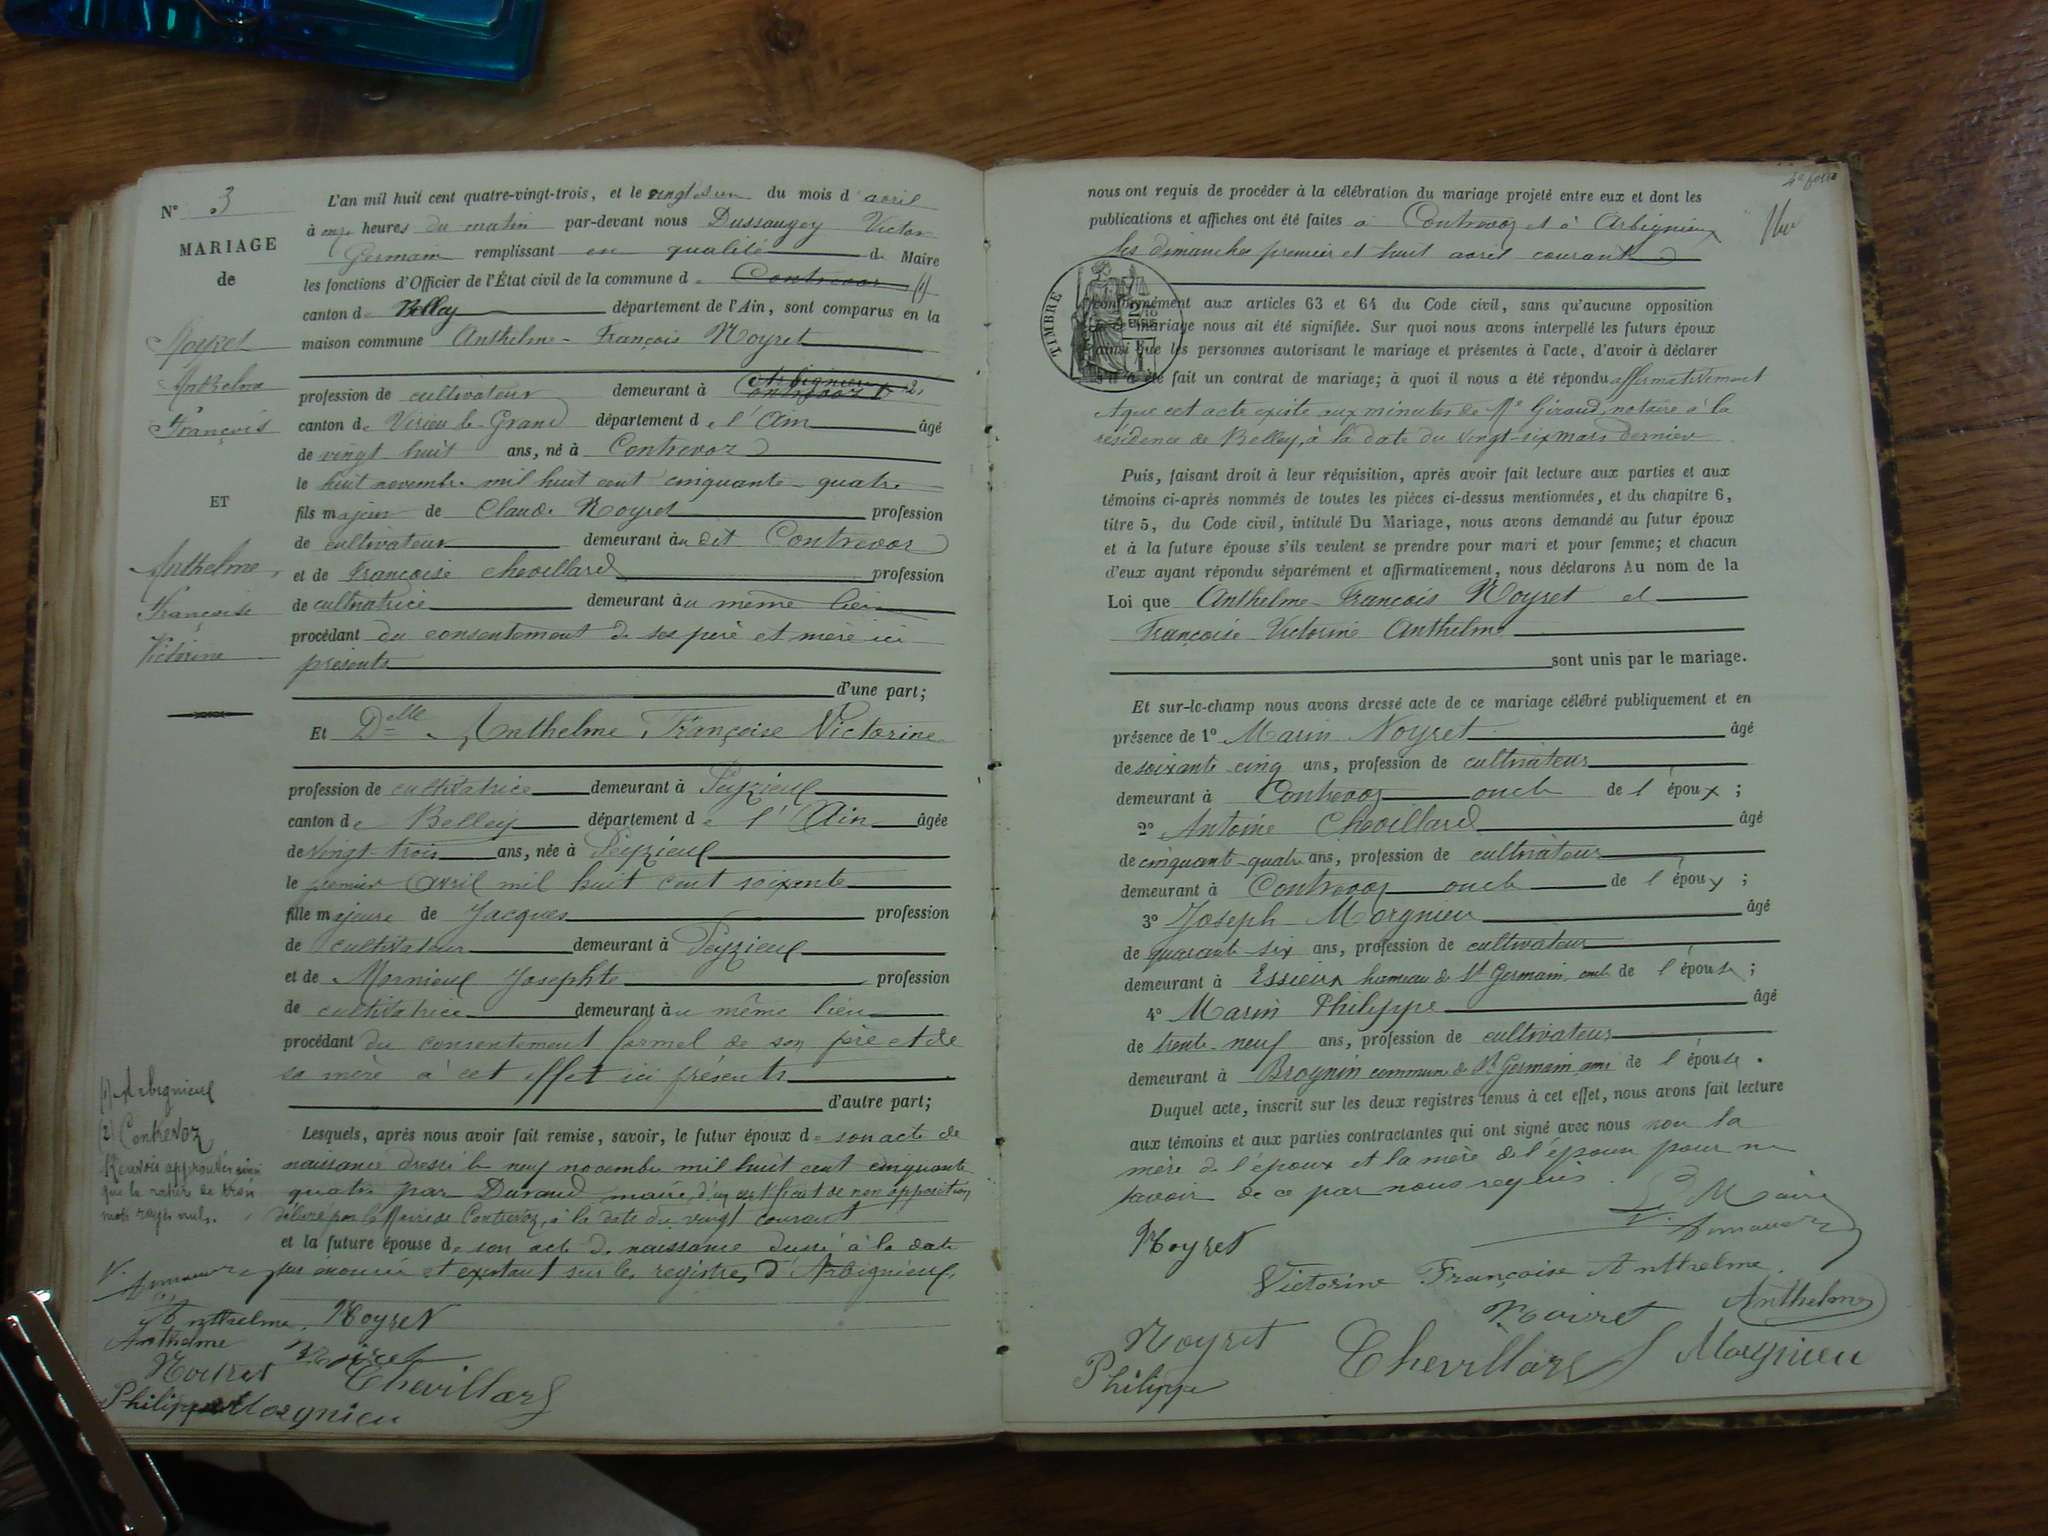 N° 3
MARIAGE
de
Noyret
Anthelme
François
ET
Anthelme
Françoise
Victorine
(1) Arbignieu
(2) Contrevoz
Renvois approuvés ainsi
que la rature de trois
mots rayés nuls.
L'an mil huit cent quatre-vingt-trois, et le vingt-un du mois d'avril
à onze heures du matin par-devant nous Dussaugey Victor
Germain remplissant en qualité de Maire
les fonctions d'Officier de l'État civil de la commune de Contrevoz (1)
canton de Belley département de l'Ain, sont comparus en la
maison commune Anthelme-François Noyret
profession de cultivateur demeurant à Contrevoz (2)
canton de Virieu-le-Grand département de l'Ain âgé
de vingt huit ans, né à Contrevoz
le huit novembre mil huit cent cinquante-quatre
fils majeur de Claude Noyret profession
de cultivateur demeurant au dit Contrevoz
et de Françoise Chevillard profession
de cultivatrice demeurant au même lieu
procédant du consentement de ses père et mère ici
présents
d'une part;
Et Delle Anthelme, Françoise Victorine
profession de cultivatrice demeurant à Peyzieu
canton de Belley département de l'Ain âgée
de vingt-trois ans, née à Peyzieu
le premier avril mil huit cent soixante
fille majeure de Jacques profession
de cultivateur demeurant à Peyzieu
et de Mornieu Josephte profession
de cultivatrice demeurant au même lieu
procédant du consentement formel de son père et de
sa mère à cet effet ici présents
d'autre part;
Lesquels, après nous avoir fait remise, savoir, le futur époux de son acte de
naissance dressé le neuf novembre mil huit cent cinquante
quatre par Durand, maire, d'un certificat de non opposition
délivré par le Maire de Contrevoz, à la date du vingt courant
et la future épouse de son acte de naissance dressé à la date
sus énoncée et existant sur les registres d'Arbignieu.
Anthelme Noyret
Anthelme
Noiret
Chevillard
Philippe Morgnieu
nous ont requis de procéder à la célébration du mariage projeté entre eux et dont les
publications et affiches ont été faites à Contrevoz et à Arbignieu
les dimanches premier et huit avril courant
TIMBRE
conformément aux articles 63 et 64 du Code civil, sans qu'aucune opposition
à ce mariage nous ait été signifiée. Sur quoi nous avons interpellé les futurs époux
ainsi que les personnes autorisant le mariage et présentes à l'acte, d'avoir à déclarer
s'il a été fait un contrat de mariage; à quoi il nous a été répondu affirmativement
et que cet acte existe aux minutes de Me Giraud, notaire à la
résidence de Belley, à la date du vingt-six mars dernier
Puis, faisant droit à leur réquisition, après avoir fait lecture aux parties et aux
témoins ci-après nommés de toutes les pièces ci-dessus mentionnées, et du chapitre 6,
titre 5, du Code civil, intitulé Du Mariage, nous avons demandé au futur époux
et à la future épouse s'ils veulent se prendre pour mari et pour femme; et chacun
d'eux ayant répondu séparément et affirmativement, nous déclarons Au nom de la
Loi que Anthelme-François Noyret et
Françoise Victorine Anthelme
sont unis par le mariage.
Et sur-le-champ nous avons dressé acte de ce mariage célébré publiquement et en
présence de 1° Marin Noyret âgé
de soixante cinq ans, profession de cultivateur
demeurant à Contrevoz oncle de l'époux;
2° Antoine Chevillard âgé
de cinquante-quatre ans, profession de cultivateur
demeurant à Contrevoz oncle de l'époux;
3° Joseph Morgnieu âgé
de quarante six ans, profession de cultivateur
demeurant à Essieux hameau de St Germain, oncle de l'épouse;
4° Marin Philippe âgé
de trente-neuf ans, profession de cultivateur
demeurant à Brognin commune de St Germain ami de l'épouse.
Duquel acte, inscrit sur les deux registres tenus à cet effet, nous avons fait lecture
aux témoins et aux parties contractantes qui ont signé avec nous non la
mère de l'époux et la mère de l'épouse pour ne
savoir de ce par nous requis.
Le Maire
Noyret
Victorine Françoise Anthelme
Noiret Anthelme
Noyret Chevillard Morgnieu
Philippe